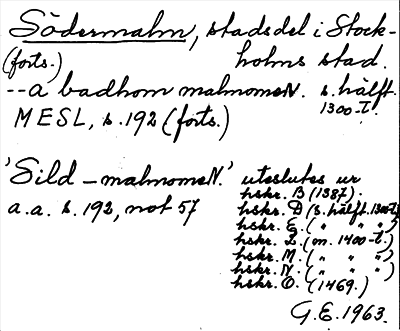 Södermalm, stadsdel i Stock-
(forts.) holms stad.
--a badhom malmomeN. s. hälft.
1300-t.
MESL, s. 192 (forts.)
'Sild - malmomeN.' uteslutes ur
hskr. B (1387).
a.a. s. 192, not 57 hskr. D (s. hälft. 1300-t)
hskr. E. ( " " " )
hskr. L. (m. 1400-t.)
hskr. M. ( " " " )
hskr. N. ( " " " )
hskr. O. (1469.)
G.E. 1963.